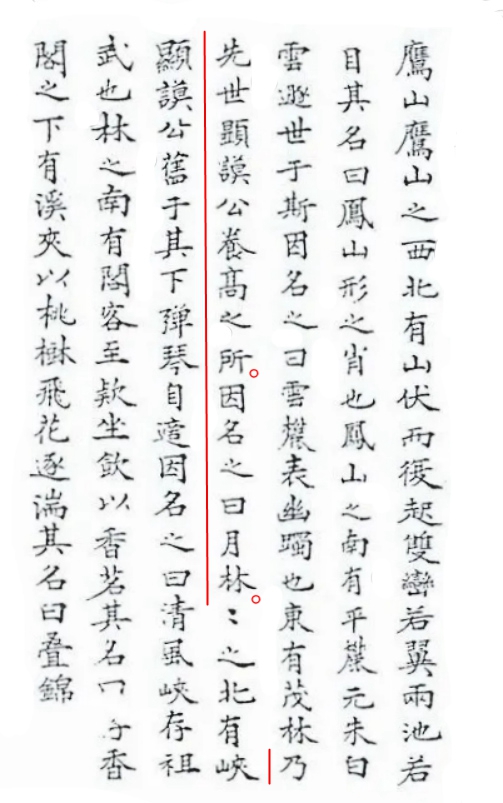 鷹山鷹山之西北有山伏而復起雙巒若翼兩池若
目其名曰鳳山形之肖也鳳山之南有平麓元朱白
雲遯世于斯因名之曰雲麓表幽躅也東有茂林乃
先世顯謨公養高之所因名之曰月林〻之北有峽
顯謨公舊于其下彈琴自適因名之曰清風峽存祖
武也林之南有閣客至欵坐飲以香茗其名香
閣之下有溪夾以桃樹飛花逐湍其名曰疊錦